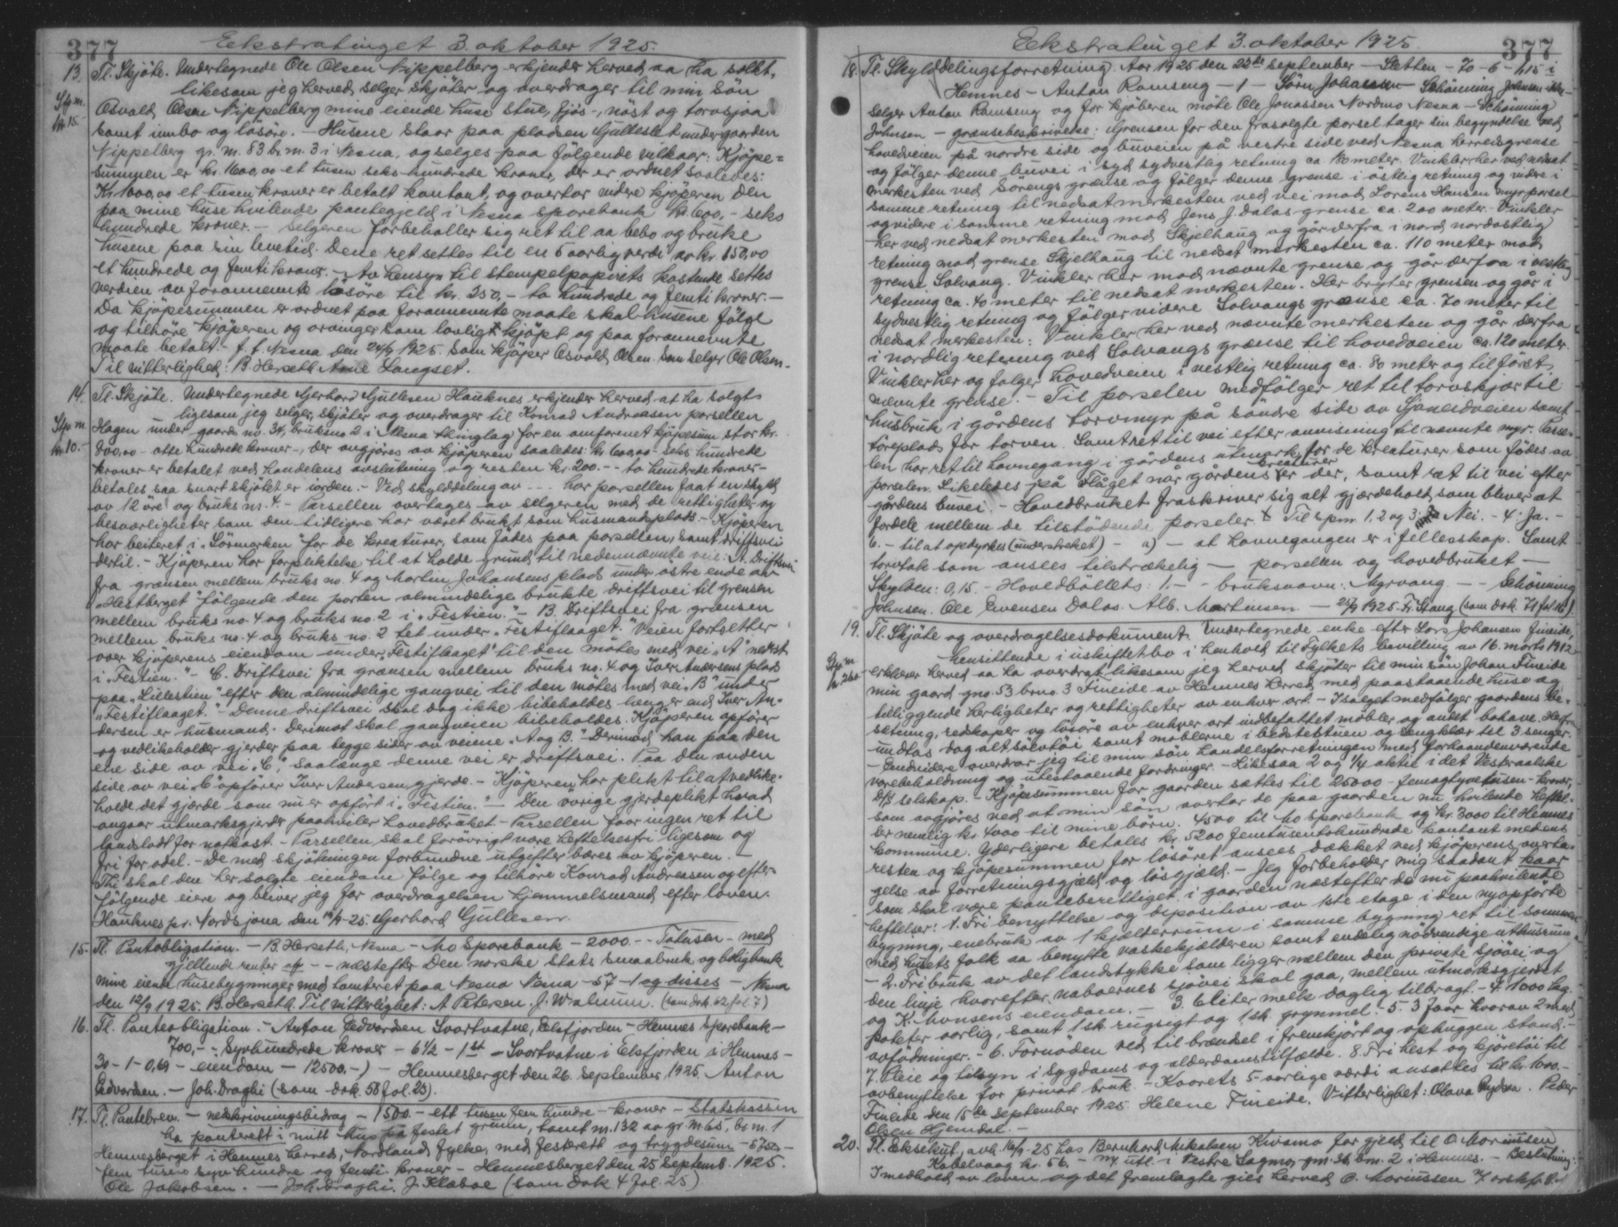 377
Ekstratinget 3. oktober 1925.
13. Tl. Skjöte. Undertegnede Ole Olsen Nippelberg erkjender herved aa ha solgt,
likesom jeg herved selger skjöter og overdrager til min sön
Stp. m.
kr. 15.
Osvald Olsen Nippelberg mine eiende huse stue, fjös, nöst og torvsjaa
samt innbo og lösöre. - Husene staar paa pladsen Gulleslet under gaarden
Nippelberg gr. m. 83 br. m. 3 i Nesna, og selges paa fölgende vilkaar: Kjöpe=
summen er kr. 1600,00 et tusen seks hundrede kroner, der er ordnet saaledes:
Kr. 1000,00 et tusen kroner er betalt kontant, og overtar videre kjöperen den
paa mine huse hvilende pantegjeld i Nesna sparebank kr. 600,- seks
hundrede kroner. - Selgeren forbeholder sig ret til aa bebo og bruke
husene paa sin levetid. Dene ret settes til en 5 aarlig verdi av kr. 150,00
et hundrede og femti kroner. - Av hensyn til stempelpapirets kostende settes
verdien av forannevnte lösöre til kr. 250,- to hundrede og femti kroner. -
Da kjöpesummen er ordnet paa forannevnte maate skal husene fölge
og tilhöre kjöperen og arvinger som lovligt kjöpt og paa forannevnte
maate betalt. - f. t. Nesna den 24/9 1925. Som kjöper Osvald Olsen. Som selger Ole Olsen.
Til vitterlighed: B Herseth Arne Langset.
14. Tl. Skjöte. Undertegnede Gjerhard Gullesen Hauknes erkjender herved at ha solgt
ligesom jeg selger, skjöter og overdrager til Konrad Andreasen porsellen
Stp. m.
kr. 10.
Hagen under gaards no. 34, bruksno 2 i Nesna tinglag for en omforenet kjöpesum stor kr.
800,00 - otte hundrede kroner -, der avgjöres av kjöperen saaledes: kr. 600,00 - seks hundrede
kroner er betalet ved handelens avslutning og resten kr. 200. - to hundrede kroner -
betales saa snart skjötet er i orden. - Ved skylddeling av ... har porsellen faat en skyld
av 12 öre og bruks no. 4. - Parsellen overtages av selgeren med de rettigheter og
besværligheter som den tidligere har været brukt som husmandsplads - Kjöperen
har beiteret i "Sörmarken" for de kreaturer, som födes paa porsellen, samt driftsvei
dertil. - Kjöperen har forpliktelse til at holde grund til nedennævnte vei: A. Driftsvei
fra grænsen mellem bruks no. 4 og Martin Johansens plads under östre ende av
"Hestberget" fölgende den porten almindelige brukte driftsvei til grensen
mellem bruks no 4 og bruks no. 2 i "Festien." - B. Driftsvei fra grænsen
mellem bruks no. 4 og bruks no. 2 tet under "Festiflaaget." Veien fortsetter
over kjöperens eiendom under "Festiflaaget" til den mötes med vei "A" nedost
i "Festien." - C. Driftsvei fra grænsen mellem bruks no. 4 og Iver Andersens plads
paa "Lillestien" efter den almindelige gangvei til den mötes med vei "B" under
"Festiflaaget." Denne driftsvei skal dog ikke bibeholdes længer end Iver An-
dersen er husmand. Derimot skal gangveien bibeholdes. Kjöperen opförer
og vedlikeholder gjerder paa begge sider av veiene "A og B." Dermod han paa den
ene side av vei "C", saalænge denne vei er driftsvei. Paa den anden
side av vei "C" opförer Iver Andersen gjerde. - Kjöperen har plikt til at vedlike-
holde det gjærde som nu er opförd i "Festien." - Den övrige gjerdeplikt hvad
angaar utmarksgjerde paahviler hovedbruket - Parsellen faar ingen ret til
landslodt for notkast. - Parsellen skal forövrigt være heftelsesfri ligesom og
fri for odel. - De med skjötningen forbundne utgifter bæres av kjöperen. -
Thi skal den her solgte eiendom fölge og tilhöre Konrad Andreassen og efter-
fölgende eiere og bliver jeg for overdragelsen hjemmelsmand efter loven.
Hauknes pr. Nordsjona den 14/9-25. Gjerhard Gullesen.
15. Tl. Pantobligation. - B. Herseth, Nesna - Mo Sparebank - 2000.- - Totusen - med
gjeldende renter - næstefter Den norske stats smaabruk og boligbank
mine eiende husebygninger med tomteret paa Nesna Nesna - 57 - 1 og disses - Nesna
den 12/9 1925. B. Herseth. Til vitterlighet: A Petersen. J. Walnum. (som dok. 62 fol. 7)
16. Tl. Panteobligation. - Anton Edvardsen Svartvatne, Elsfjorden - Hemnes Sparebank -
700,- - Syvhundrede kroner - 6½ - 1st - Svartvatne i Elsfjorden i Hemnes -
30 - 1 - 0,69 - eiendom - 12500.-) - Hemnesberget den 26. September 1925 Anton
Edvardsen. - Joh. Draghi (som dok. 58 fol. 23).
17. Tl. Pantebrev. - nedskrivningsbidrag - 1500.- ett tusen fem hundre - kroner - Statskassen
ha panterett i mitt hus på festet grunn, tomt m. 132 av gr m 65, br m. 1
Hemnesberget i Hemnes herred, Nordland fylke, med festerett og trygdesum - 5750,-
fem tusen syv hundre og femti kroner - Hemnesberget den 25 Septemb. 1925.
Ole Jakobsen. - Joh. Draghi. J. Klæboe (som dok 4 fol. 25)
Ekstratinget 3. oktober 1925.
377
18. Tl. Skylddelingsforretning. Aar 1925 den 23de September - Sletten - 70 - 6 - 1,15 i
Hemnes - Anton Ramseng - 1 - Schönning Johnsen
selger Anton Ramseng og for kjöberen möte Ole Jonassen Nordmo Nesna - Schönning
Johnsen - grænsebeskrivelse: Grensen for den frasolgte parsel tager sin begyndelse ved
hovedveien på nordre side og buveien på vestre side ved Nesna herredsgrense
og fölger denne buvei i syd sydvestlig retning ca 180 meter. Vinkler her ved nedsat
merkesten ved Sorengs grænse og fölger denne grense i östlig retning og videre i
samme retning til nedsat merkesten ved vei mod Lorens Hansens myrparsel
og videre i samme retning mod Jens J. Dalos grense ca. 200 meter. Vinkler
her ved nedsat merkesten mod Skjelhaug og går derfra i nord nordöstlig
retning mod grense Skjelhaug til nedsat merkesten ca. 110 meter mod
grense Solvang. Vinkler her mod nævnte grense og går derfra i vestlig
retning ca. 40 meter til nedsat merkesten. Her bryter grensen og går i
sydvestlig retning og fölger videre Solvangs grænse ca. 70 meter til
nedsat merkesten. Vinkler her ved nævnte merkesten og går derfra
i nordlig retning ved Solvangs grænse til hovedveien ca. 120 meter.
Vinkler her og fölger hovedveien i vestlig retning ca. 80 meter og til först
nævnte grense. - Til parselen medfölger ret til torvskjær til
husbruk i gårdens torvmyr på söndre side av Sjåneidveien samt
töreplads for torven. Samt ret til vei efter anvisning til nævnte myr. Parse-
len har ret til havnegang i gårdens utmark for de kreaturer som födes på
parselen. Likeledes på Flåget når gårdens kreaturer er der, samt ret til vei efter
gårdens buvei. - Hovedbruket fraskriver sig alt gjærdehold som bliver at
fordele mellem de tilstödende parseler. Til spm. 1, 2 og 3: Nei. - 4. Ja. -
6. - til at opdyrkes (understreket) - a) - at havnegangen er i fellesskap. Samt
torvtak som ansees tilstrækkelig - parsellen og hovedbruket -
Skylden: 0,15. Hovedböllets: 1.- - bruksnavn: Myrvang - - Schönning
Johnsen. Ole Evensen Dalos. Alb. Martinsen - 25/9 1925. Fr. Stang (som dok. 71 fol. 16).
19. Tl. Skjöte og overdragelsesdokument. Undertegnede enke efter Lars Johansen Fineide,
hensittende i uskiftet bo i henhold til Fylkets bevilling av 16. marts 1912
Stp. m.
kr. 260.
erklærer herved aa ha overdrat likesom jeg herved skjöter til min sön Johan Fineide
min gaard gno 53 brno 3 Fineide av Hemnes herred med paastaaende huse og
tilliggende herligheter og rettigheter av enhver art. - I salget medfölger gaardens be-
setning, redskaper og lösöre av enhver art indbefattet möbler og andet bohave. Herfra
undtas dog alt sölvtöi samt möblerne i bedstestuen og sengklær til 3 senger.
- Endvidere overdrar jeg til min sön handelsforretningen med forhaandenværende
varebeholdning og utestaaende fordringer. - Likesaa 2 og ¼ aktie i det Vestraalske
D/S selskap. - Kjöpesummen for gaarden sættes til 25000 - femogtyvetusen - kroner,
som avgjöres ved at min sön overtar de paa gaarden nu hvilende heftel-
ser nemlig kr. 4000 til mine börn, 4500 til Mo Sparebank og kr. 3000 til Hemnes
kommune. Yderligere betalles kr. 5200 femtusentohundrede kontant medens
resten og kjöpesummen for lösöret ansees dækket ved kjöperens overta-
gelse av forretningsgjeld og lösgjæld. - Jeg forbeholder mig saadant kaar
som skal være panteberettiget i gaarden næstefter de nu paahvilende
heftelser: 1. Fri benyttelse og disposition av 1ste etage i den nyopförte
bygning, enebruk av 1 kjelderrum i samme bygning, ret til sammen
med husets folk aa benytte vaskekjælderen samt endelig nödvendige uthusrum
- 2. Fri bruk av det landstykke som ligger mellem den private sjövei og
den linje hvorefter naboernes sjövei skal gaa, mellem utmarksgjerdet
og K. Monsens eiendom. - 3. 6 liter melk daglig tilbragt. - 4. 1000 kg.
poteter aarlig, samt 1 sk. rugsigt og 1 sk. grynmel. 5. 3 Faar hvorav 2 med
avfödninger. - 6. Fornöden ved til brændsel i fremkjört og ophuggen stand. -
7. Pleie og tilsyn i sygdoms og alderdomstilfælde. 8. Fri hest og kjöretöi til
avbenyttelse for privat bruk. - Kaarets 5-aarlige værdi ansættes til kr. 1000.-
Fineide den 15de September 1925. Helene Fineide. Vitterlighet: Olava Peder
Olsen Hjemdal. -
20. Tl. Eksekut. avh. 14/9-25 hos Bernhard Mikalsen Kvamo for gjeld til O. Mariussen
Kobelvaag kr. 56. - utl. i Vestre Lagmo, gm. 36 bm. 2 i Hemnes. - Beslutning:
I medhold av loven og det fremlagte gies herved O. Mariussen